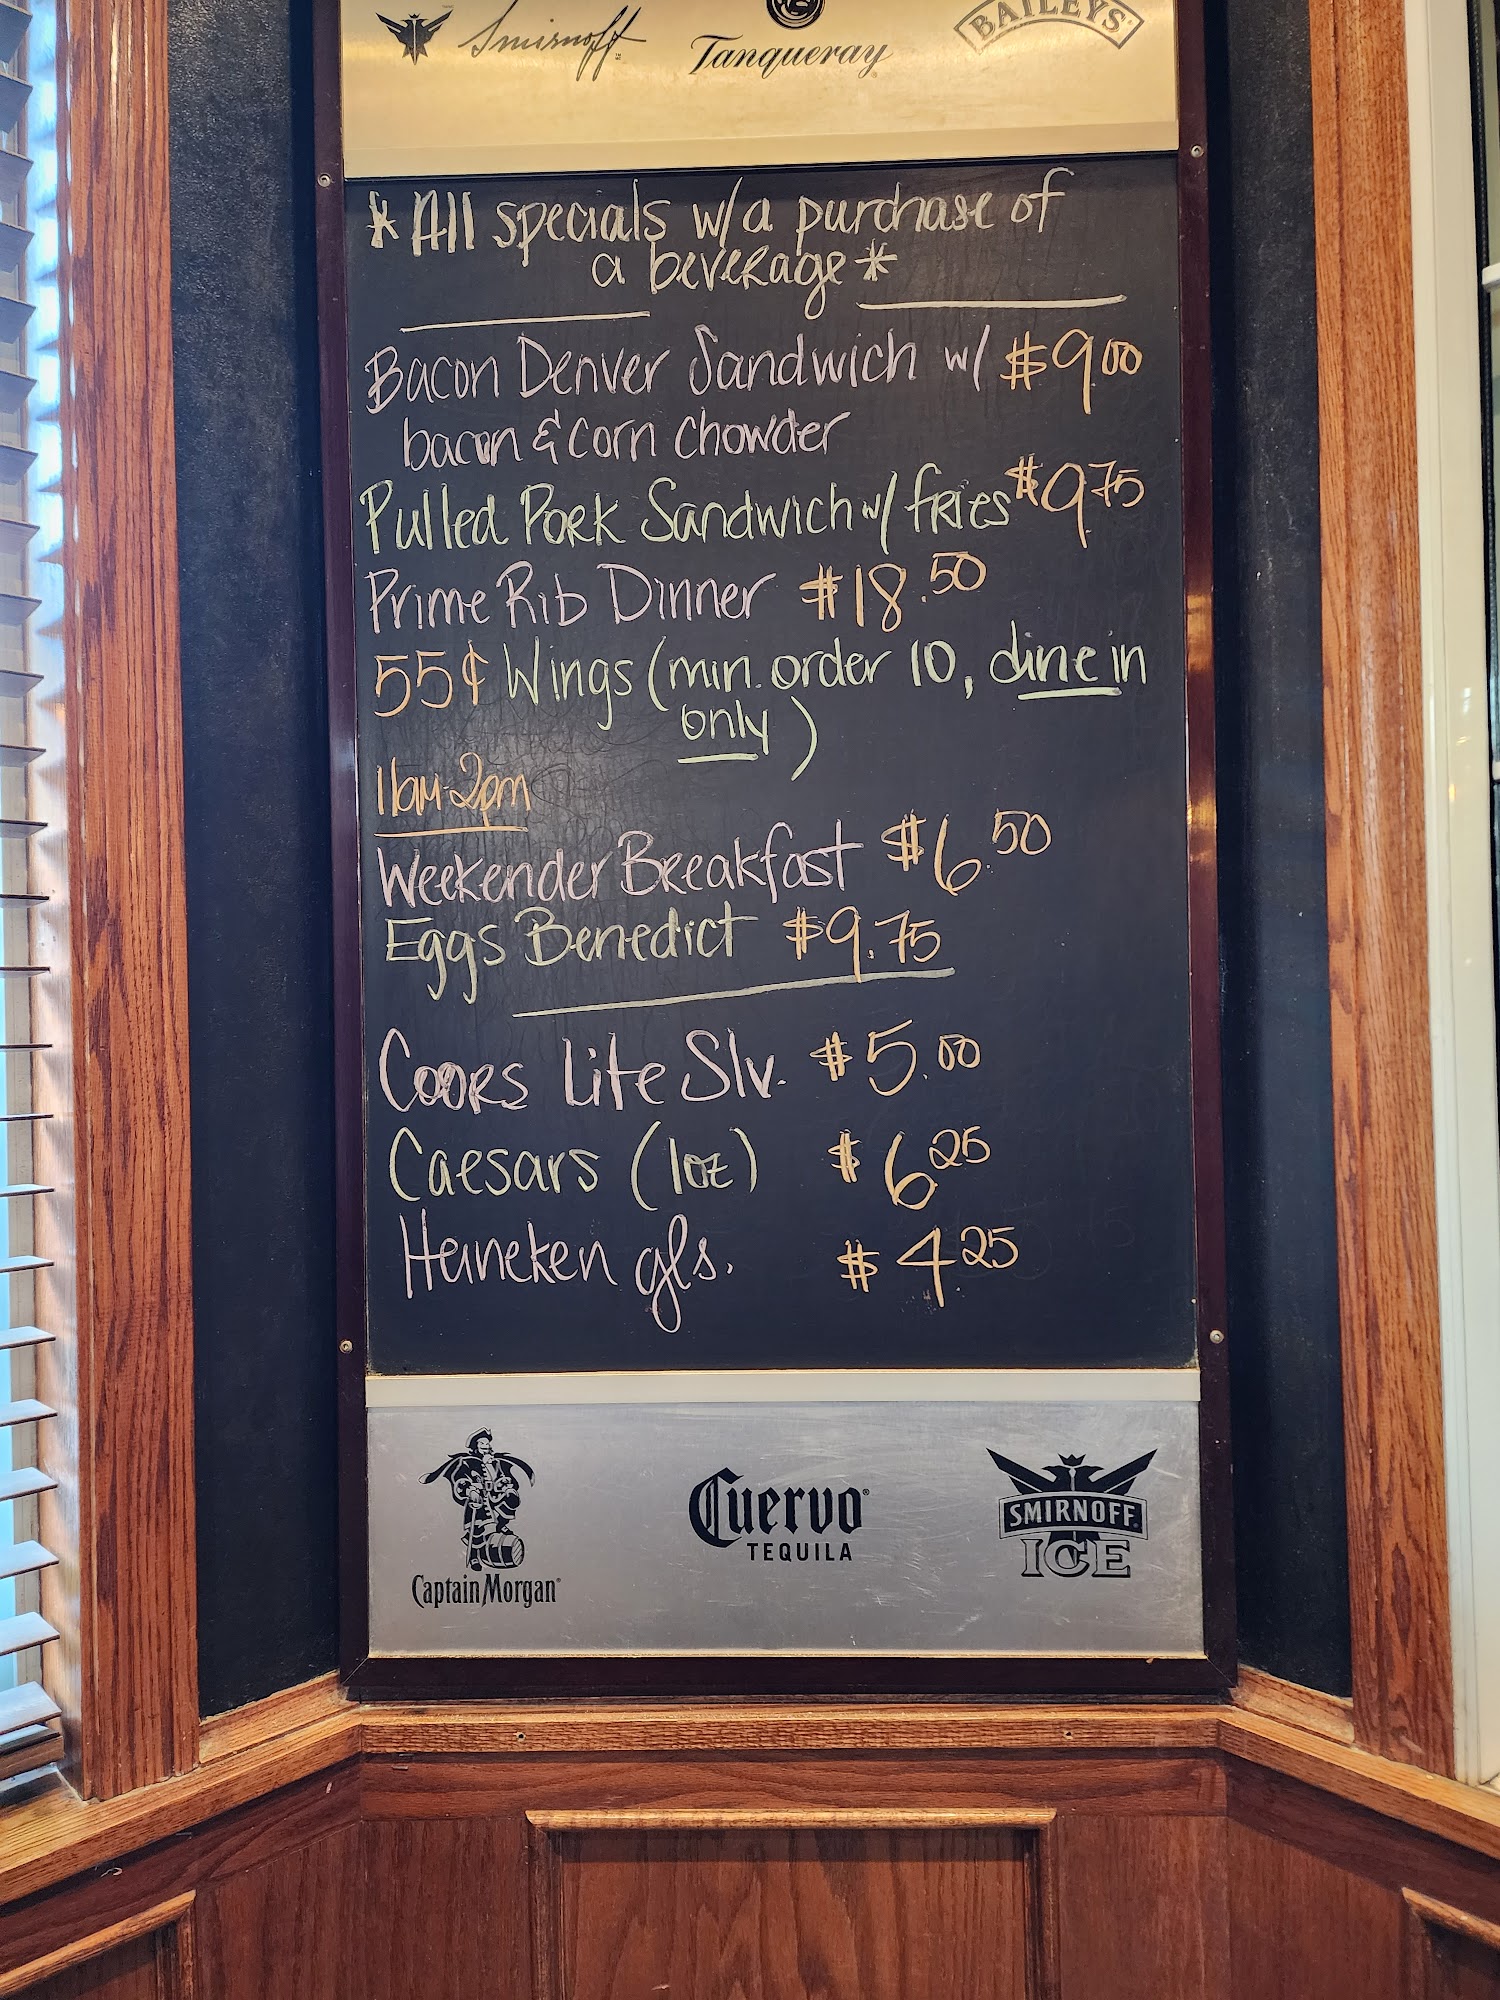 Smirnoff
Tanqueray
BAILEYS
*All specials w/a purchase of
a beverage*
Bacon Denver Sandwich w/ $9.00
bacon & corn chowder
Pulled Pork Sandwich w/ fries $9.75
Prime Rib Dinner $18.50
55¢ Wings (min. order 10, dine in
only)
11am-2pm
Weekender Breakfast $6.50
Eggs Benedict $9.75
Coors Lite Slv. $5.00
Caesars (1oz) $6.25
Heineken gls. $4.25
Captain Morgan
Cuervo®
TEQUILA
SMIRNOFF
ICE